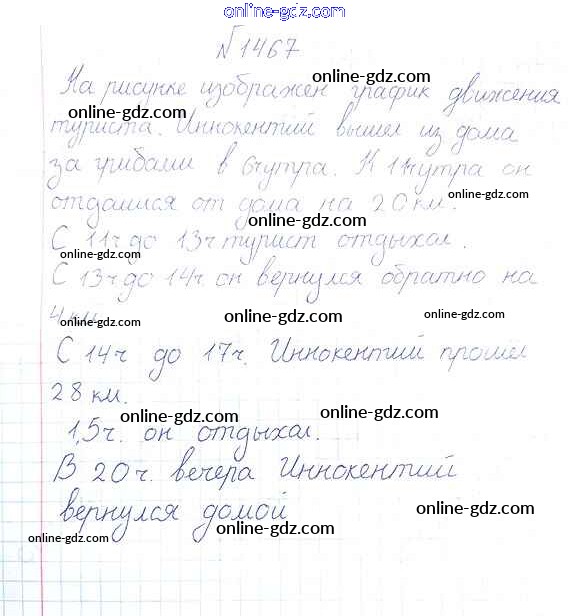 online-gdz.com
№1467
На рисунке изображен график движения
online-gdz.com online-gdz.com
online-gdz.com
туриста. Иннокентий вышел из дома
online-gdz.com
за грибами в 6чутра. К 11чутра он
online-gdz.com online-gdz.com
отдалился от дома на 20км.
online-gdz.com
С 11ч до 13ч турист отдыхал.
online-gdz.com
С 13ч до 14ч. он вернулся обратно на
4 км.
online-gdz.com online-gdz.com online-gdz.com
С 14ч до 17ч. Иннокентий прошел
28 км.
online-gdz.com online-gdz.com
1,5ч. он отдыхал.
online-gdz.com
В 20ч. вечера Иннокентий
вернулся домой
online-gdz.com online-gdz.com
online-gdz.com
online-gdz.com